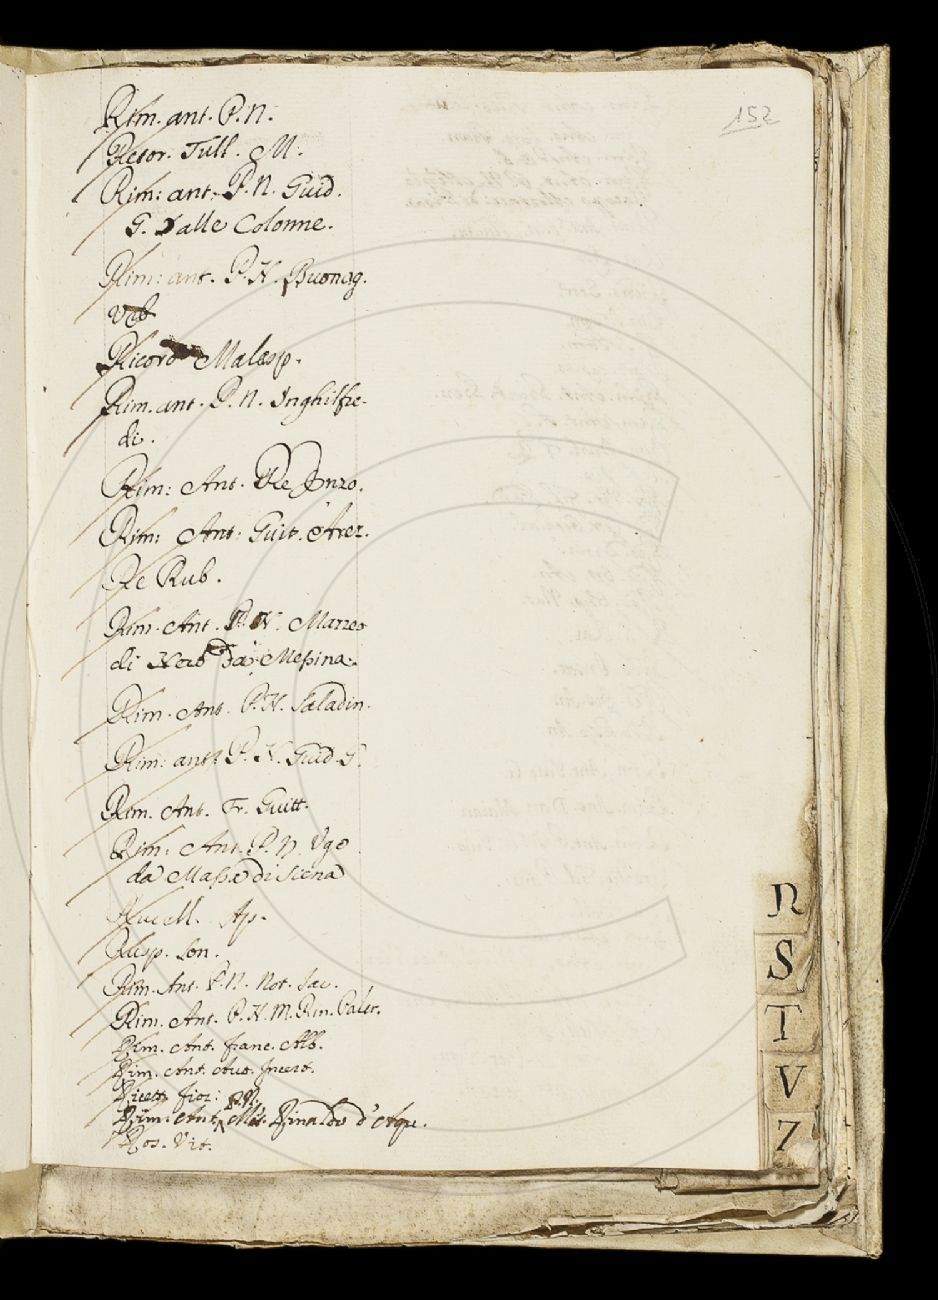 152
Rim. ant. P. N.
Retor. Tull. M.
Rim: ant. P. N. Guid.
G. Dalle Colonne.
Rim: ant. P. N. Buonag.
Urb
Ricord Malesp.
Rim. ant. P. N. Inghilfre-
di.
Rim: Ant. Re Enzo.
Rim: Ant: Guit. Arez.
Re Rub.
Rim. Ant. P. N. Mazzeo
di da Messina.
Rim. Ant. P. N. Saladin.
Rim: ant. P. N. Guid. G.
Rim. Ant. Fr. Guitt.
Rim: Ant. P. N. Ugo
da Massa di Siena
Rucell. Ap.
Risp. Son.
Rim. Ant. P. N. Not. Jac.
Rim. Ant. P. N. M. Ran. Paler.
Rim. Ant. Franc. Alb.
Rim. Ant. Aut. Incert.
Ricett. Fior:
Rim. Ant. P. N. Mes. Rinaldo d'Aqu.
Ros. Vit.
R
S
T
V
Z